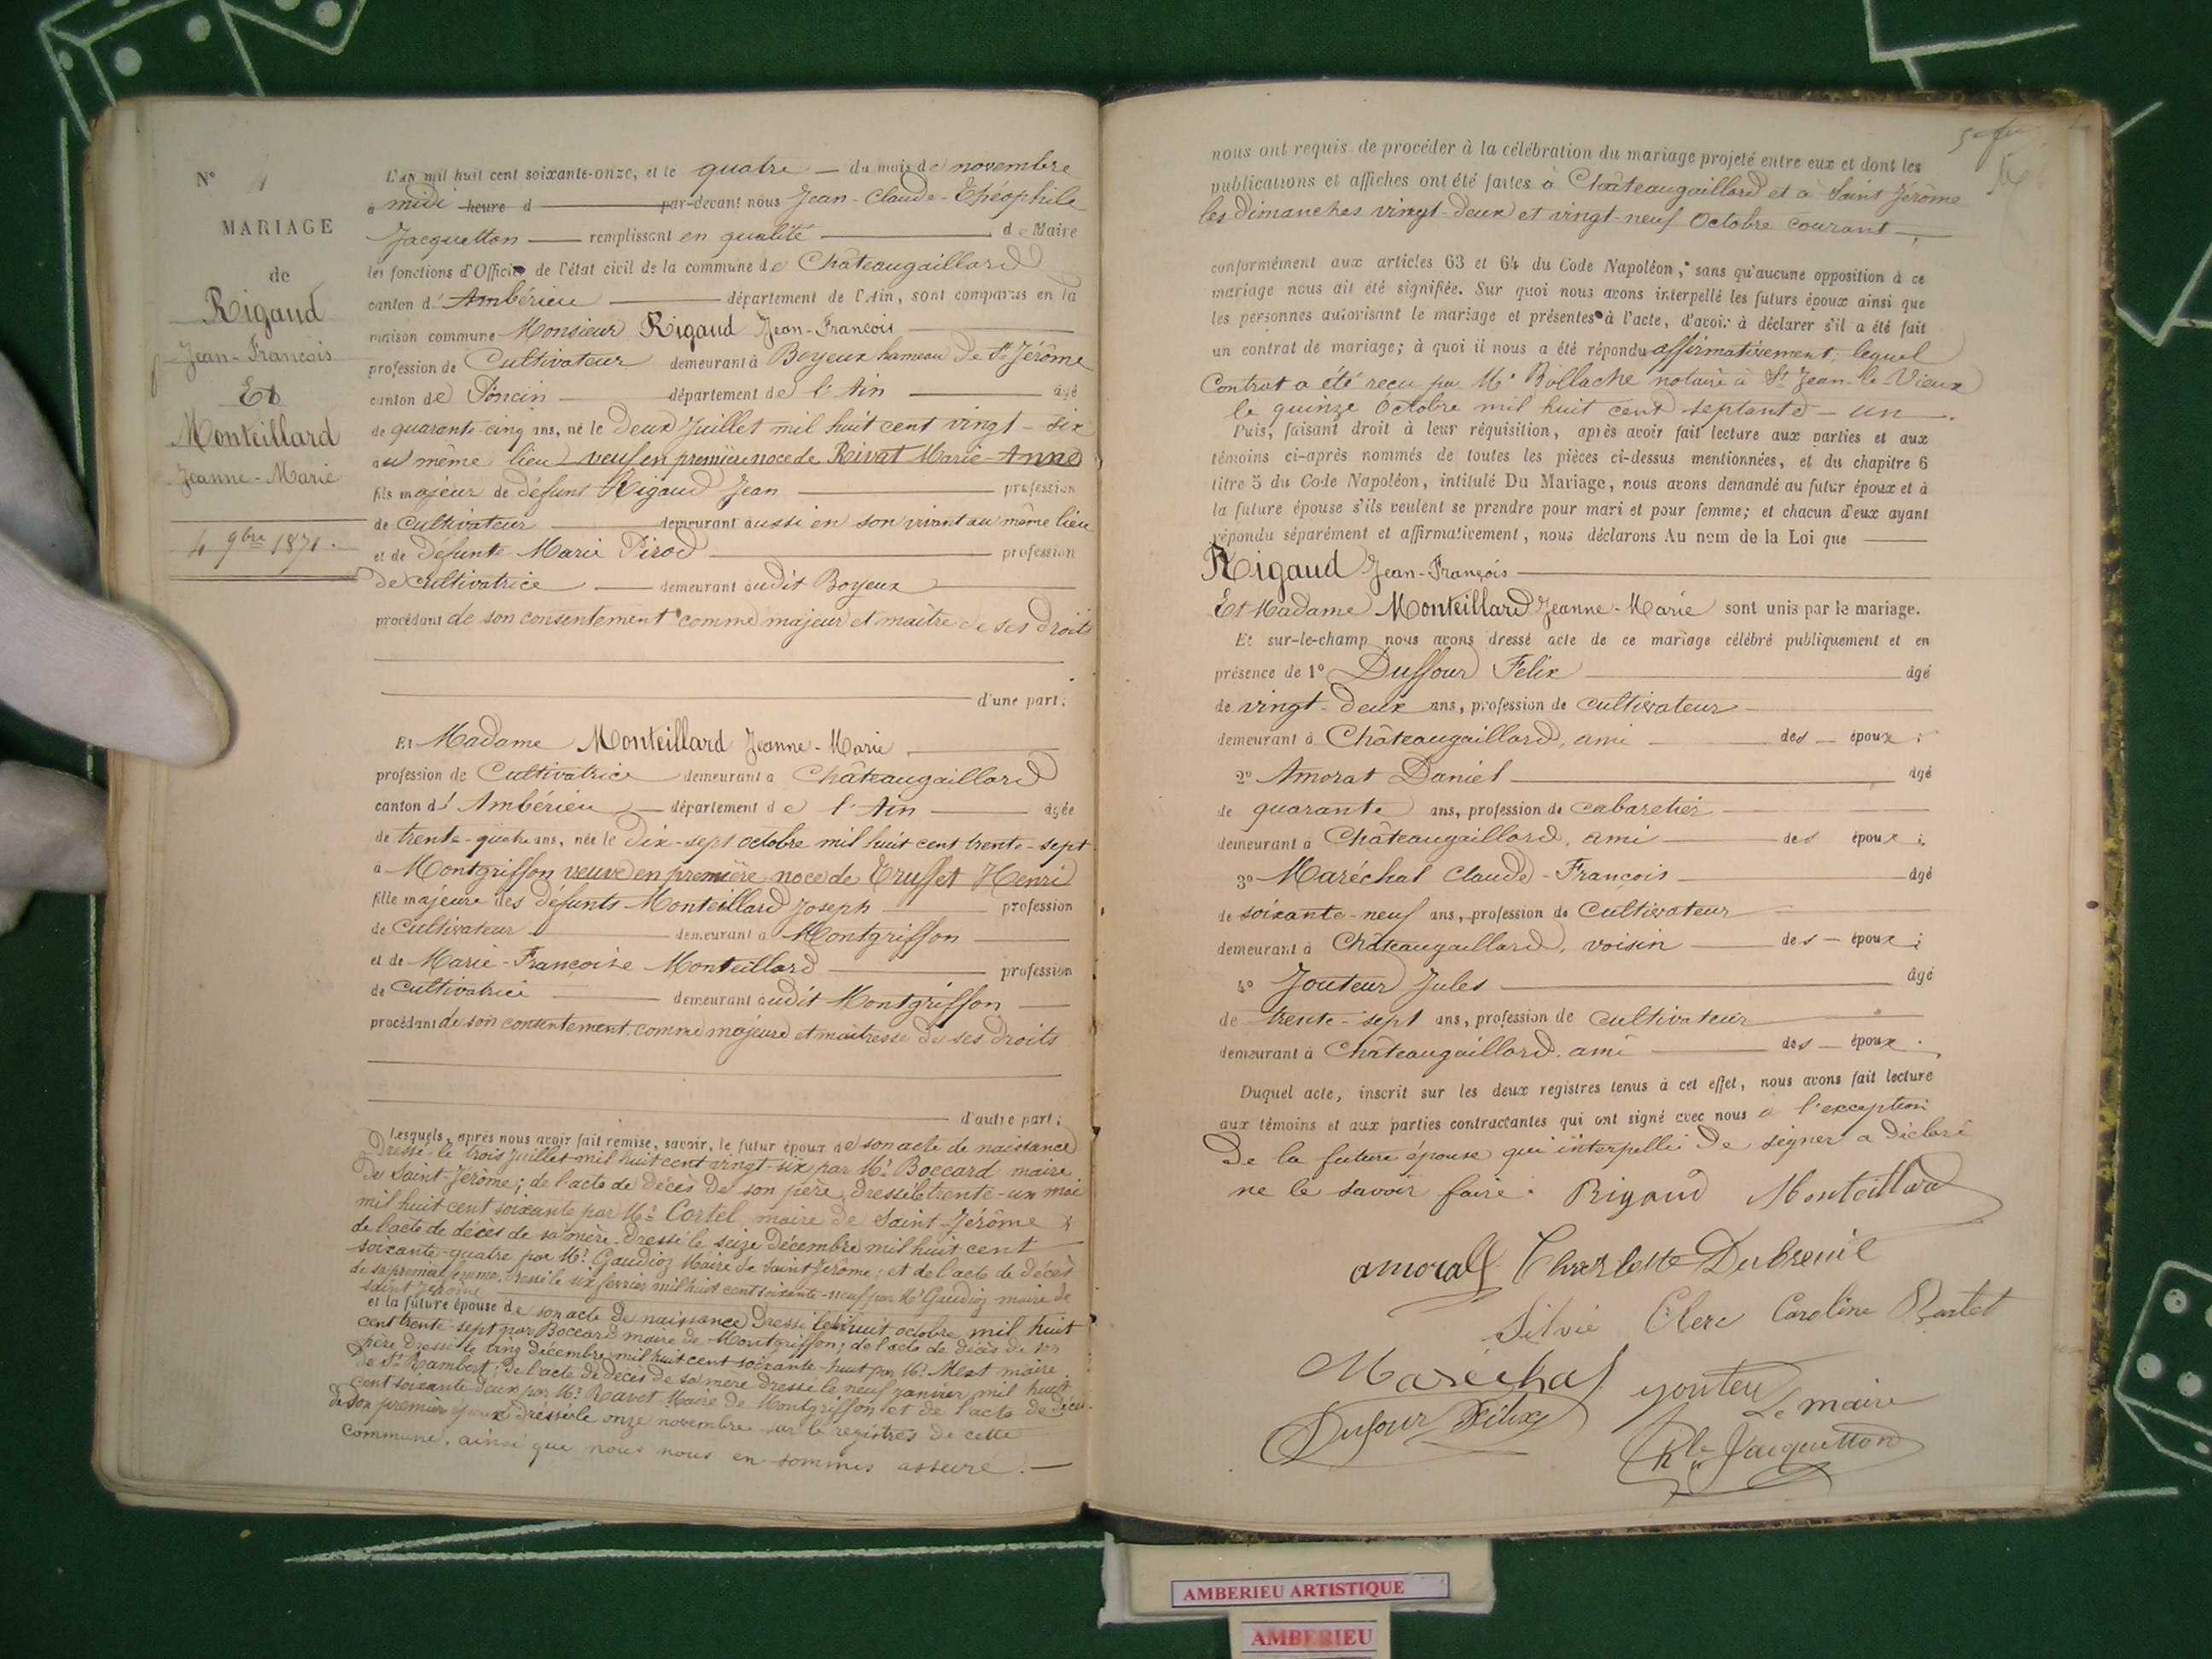 N° 1
MARIAGE
de
Rigaud
Jean-François
Et
Monteillard
Jeanne-Marie
4 9bre 1871.
L'AN mil huit cent soixante-onze, et le quatre — du mois de novembre
a midi heure d — par-devant nous Jean-Claude-Théophile
Jacquetton — remplissant en qualité — de Maire
les fonctions d'Officier de l'état civil de la commune de Châteaugaillard
canton d'Ambérieu — département de l'Ain, sont comparus en la
maison commune Monsieur Rigaud Jean-François —
profession de Cultivateur demeurant à Boyeux hameau de St Jérôme
canton de Poncin — département de l'Ain — âgé
de quarante-cinq ans, né le deux Juillet mil huit cent vingt-six
au même lieu veuf en première noce de Rivat Marie-Anne
fils majeur de défunt Rigaud Jean — profession
de cultivateur — demeurant aussi en son vivant au même lieu
et de défunte Marie Pirod — profession
de cultivatrice — demeurant audit Boyeux
procédant de son consentement comme majeur et maître de ses droits
— d'une part;
Et Madame Monteillard Jeanne-Marie —
profession de Cultivatrice demeurant à Châteaugaillard
canton d'Ambérieu — département de l'Ain — âgée
de trente-quatre ans, née le dix-sept octobre mil huit cent trente-sept
à Montgriffon veuve en première noce de Trusset Henri
fille majeure des défunts Monteillard Joseph — profession
de Cultivateur — demeurant à Montgriffon —
et de Marie-Françoise Monteillard — profession
de Cultivatrice — demeurant audit Montgriffon —
procédant de son consentement comme majeure et maîtresse de ses droits
— d'autre part;
Lesquels, après nous avoir fait remise, savoir, le futur époux de son acte de naissance
dressé le trois Juillet mil huit cent vingt-six par Mr Boccard maire
de Saint-Jérôme; de l'acte de décès de son père dressé le trente-un mai
mil huit cent soixante par Mr Cortel, maire de Saint-Jérôme
de l'acte de décès de sa mère dressé le seize Décembre mil huit cent
soixante-quatre par Mr Gaudioz Maire de Saint Jérôme; et de l'acte de décès
de sa première femme, dressé le six février mil huit cent soixante-neuf par Mr Gaudioz maire de
Saint Jérôme —
et la future épouse de son acte de naissance dressé le huit octobre mil huit
cent trente-sept par Boccard maire de Montgriffon; de l'acte de décès de son
père dressé le cinq décembre mil huit cent soixante-huit par Mr maire
de St Rambert; de l'acte de décès de sa mère dressé le neuf janvier mil huit
cent soixante deux par Mr Ravet Maire de Montgriffon et de l'acte de décès
de son premier époux dressé le onze novembre sur le registres de cette
commune, ainsi que nous nous en sommes assuré. —
nous ont requis de procéder à la célébration du mariage projeté entre eux et dont les
publications et affiches ont été faites à Châteaugaillard et à Saint Jérôme
les dimanches vingt-deux et vingt-neuf Octobre courant —,
conformément aux articles 63 et 64 du Code Napoléon, sans qu'aucune opposition à ce
mariage nous ait été signifiée. Sur quoi nous avons interpellé les futurs époux ainsi que
les personnes autorisant le mariage et présentes à l'acte, d'avoir à déclarer s'il a été fait
un contrat de mariage; à quoi il nous a été répondu affirmativement, lequel
Contrat a été reçu par Me Bollache notaire à St Jean-le-Vieux
le quinze Octobre mil huit cent septante-un —.
Puis, faisant droit à leur réquisition, après avoir fait lecture aux parties et aux
témoins ci-après nommés de toutes les pièces ci-dessus mentionnées, et du chapitre 6
titre 5 du Code Napoléon, intitulé Du Mariage, nous avons demandé au futur époux et à
la future épouse s'ils veulent se prendre pour mari et pour femme; et chacun d'eux ayant
répondu séparément et affirmativement, nous déclarons Au nom de la Loi que —
Rigaud Jean-François —
Et Madame Monteillard Jeanne-Marie sont unis par le mariage.
Et sur-le-champ nous avons dressé acte de ce mariage célébré publiquement et en
présence de 1° Duffour Felix — âgé
de vingt-deux ans, profession de cultivateur —
demeurant à Châteaugaillard, ami — des — époux;
2° Amorat Daniel — âgé
de quarante ans, profession de cabaretier —
demeurant à Châteaugaillard, ami — des époux;
3° Maréchal Claude-François — âgé
de soixante-neuf ans, profession de Cultivateur —
demeurant à Châteaugaillard, voisin — des — époux;
4° Jouteur Jules — âgé
de trente-sept ans, profession de cultivateur —
demeurant à Châteaugaillard, ami — des — époux.
Duquel acte, inscrit sur les deux registres tenus à cet effet, nous avons fait lecture
aux témoins et aux parties contractantes qui ont signé avec nous à l'exception
De la future épouse qui interpellée de signer a déclaré
ne le savoir faire. Rigaud Monteillard
amorat Charlotte Dubreuil
Silvie Clerc Caroline
Maréchal youteu Le maire
Dufour Félix Jacquetton
AMBERIEU ARTISTIQUE
AMBERIEU